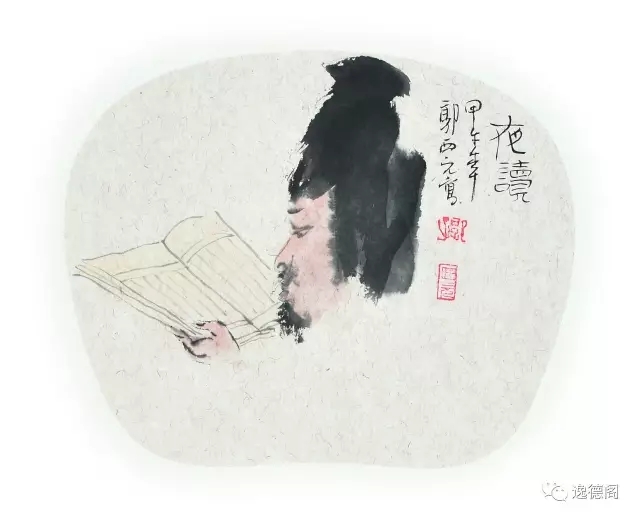 夜讀
甲午年
郭西元寫
逸德阁